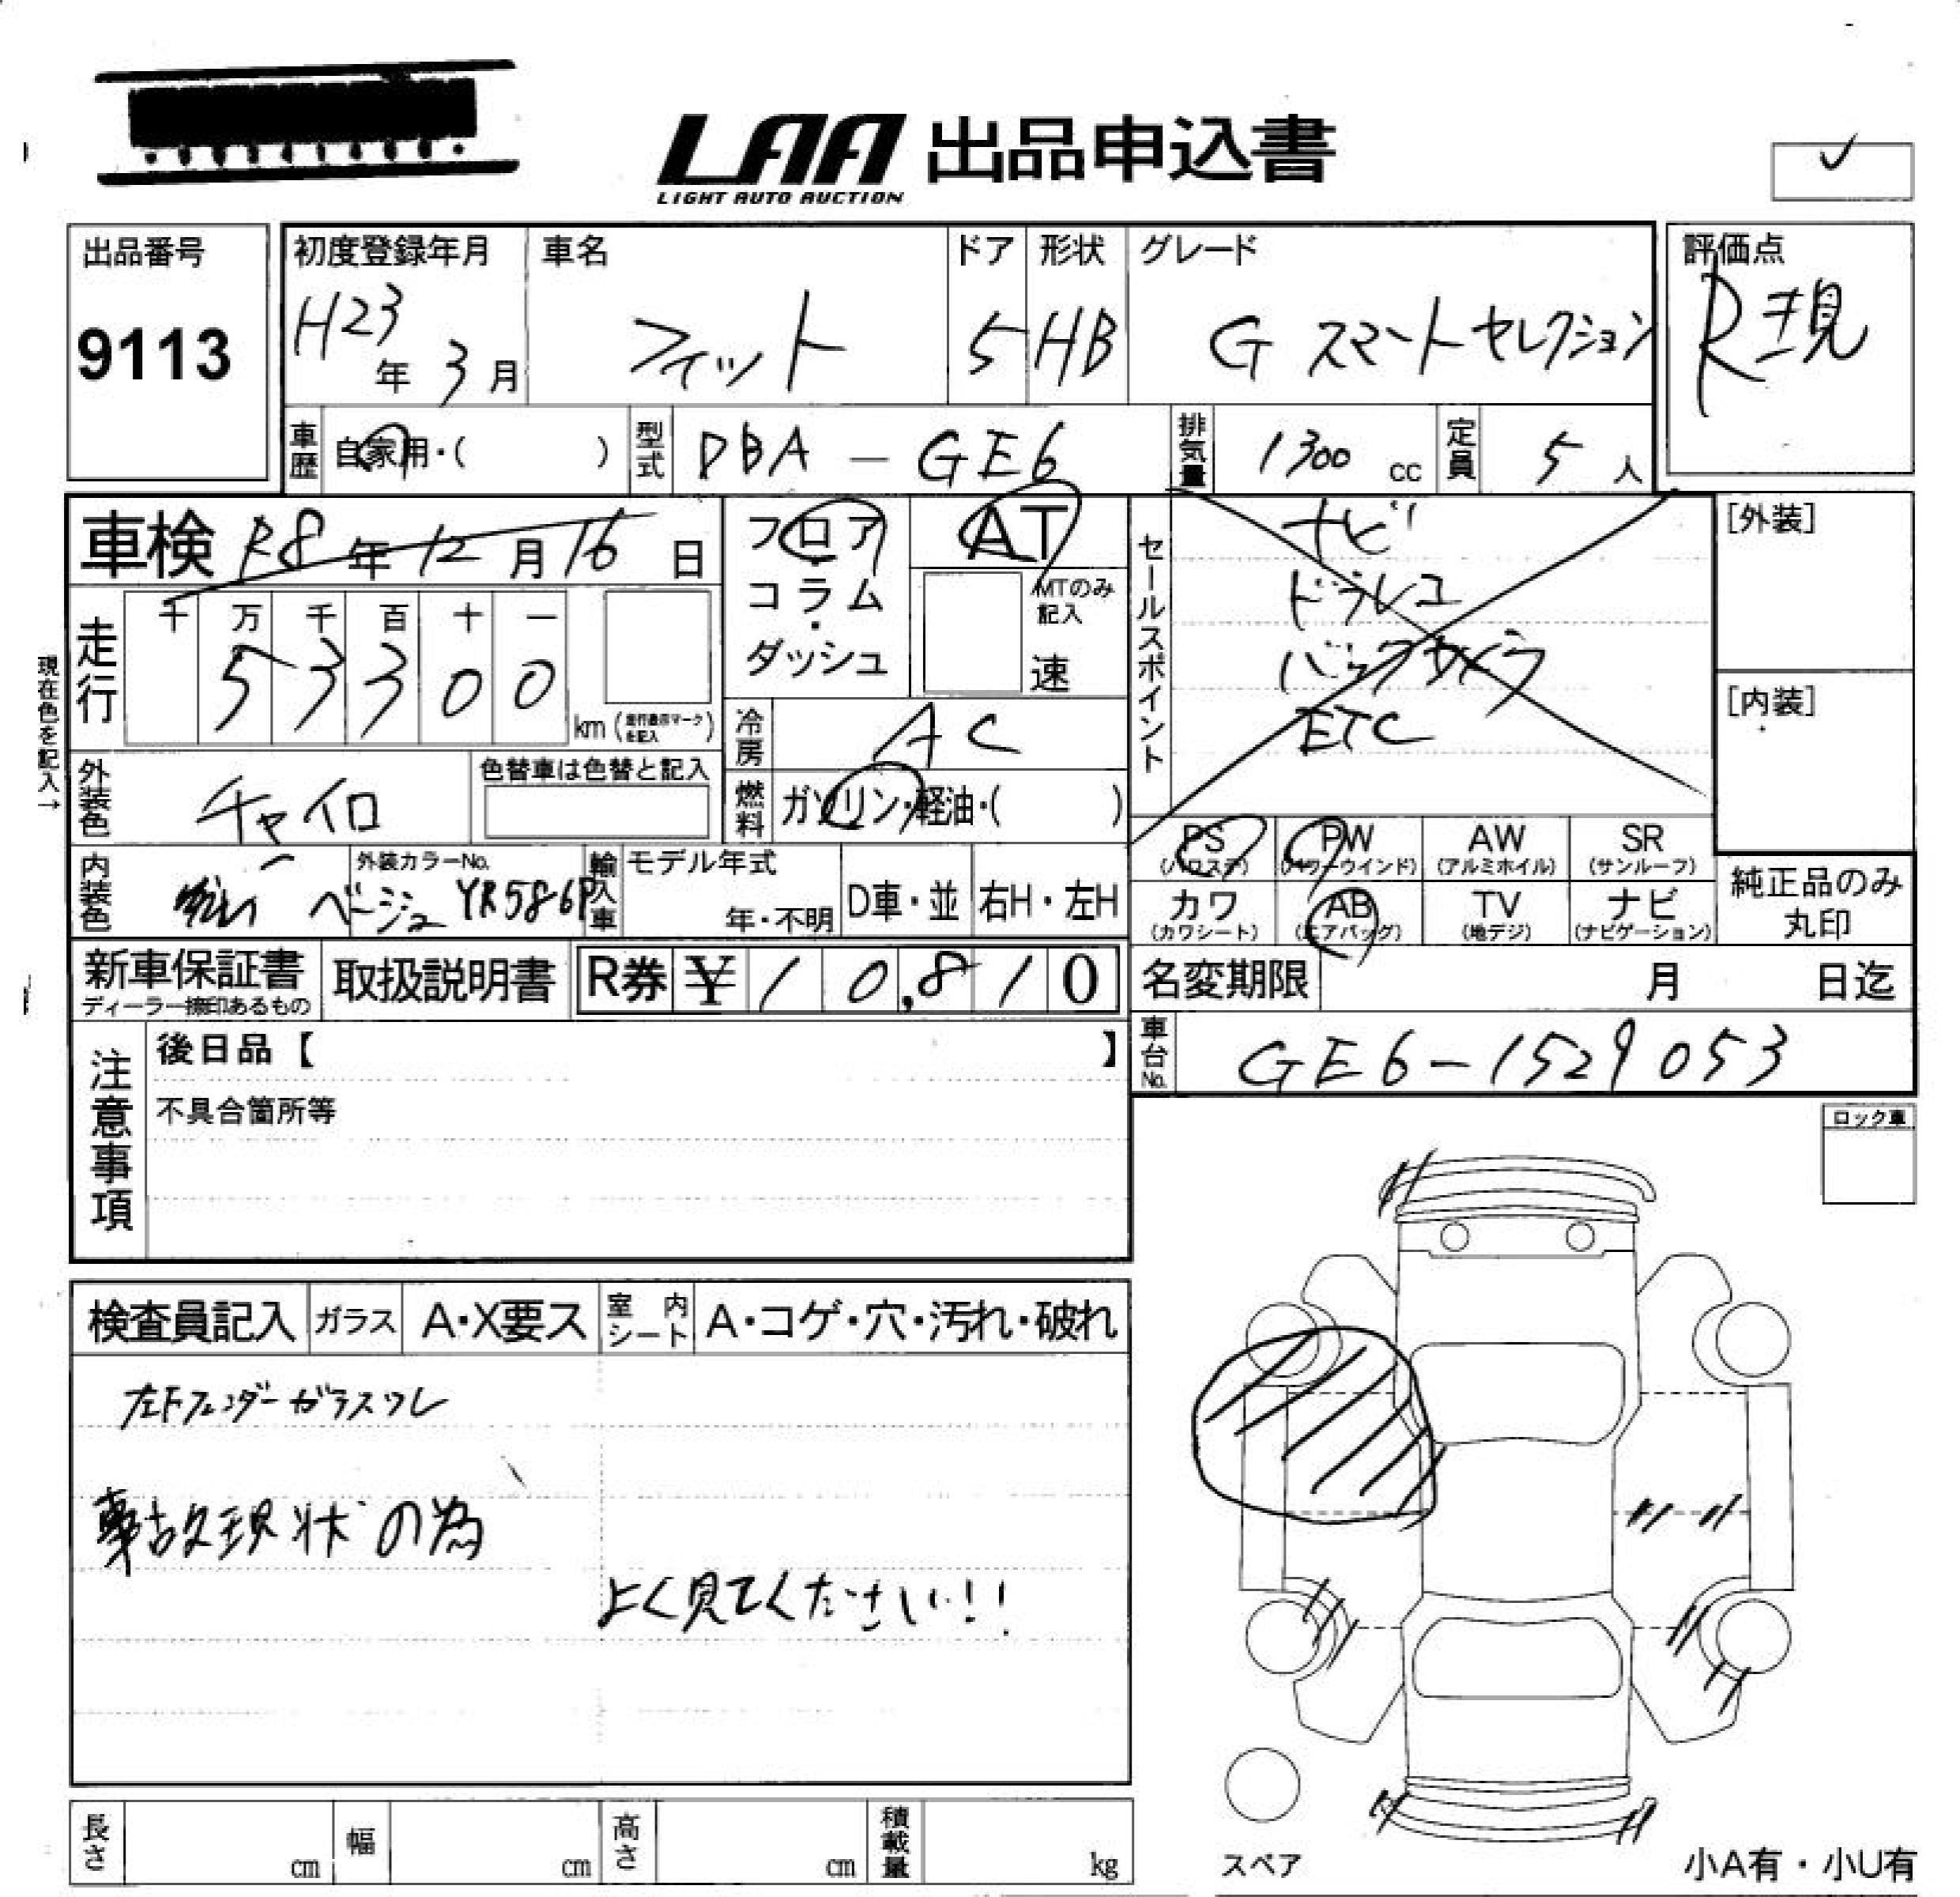 LAA 出品申込書
LIGHT AUTO AUCTION
出品番号
9113
初度登録年月
H23年 3月
車名
フィット
ドア
5
形状
HB
グレード
G スマートセレクション
評価点
R現
車歴
自家用・( )
型式
DBA - GE6
排気量
1300 cc
定員
5 人
車検 R8年 12月 16日
フロア・コラム・ダッシュ
AT
MTのみ記入
速
セールスポイント
ナビ
ドラレコ
バックカメラ
ETC
[外装]
[内装]
現在色を記入→
走行
千 万 千 百 十 一
5 3 3 0 0
km (走行表示マークを記入)
冷房
AC
外装色
チャイロ
色替車は色替と記入
燃料
ガソリン・軽油・( )
PS
(パワステ)
PW
(パワーウインド)
AW
(アルミホイル)
SR
(サンルーフ)
内装色
ベージュ
外装カラーNo.
YR586P
輸入車
モデル年式
年・不明
D車・並
右H・左H
カワ
(カワシート)
AB
(エアバッグ)
TV
(地デジ)
ナビ
(ナビゲーション)
純正品のみ
丸印
新車保証書
ディーラー捺印あるもの
取扱説明書
R券 ¥10,810
名変期限
月 日迄
注意事項
後日品【 】
不具合箇所等
車台No.
GE6-1529053
ロック車
検査員記入
ガラス
A・X要ス
室内シート
A・コゲ・穴・汚れ・破れ
左Fフェンダーガラスワレ
事故現状の為
よく見てください!!
長さ
cm
幅
cm
高さ
cm
積載量
kg
スペア
小A有・小U有